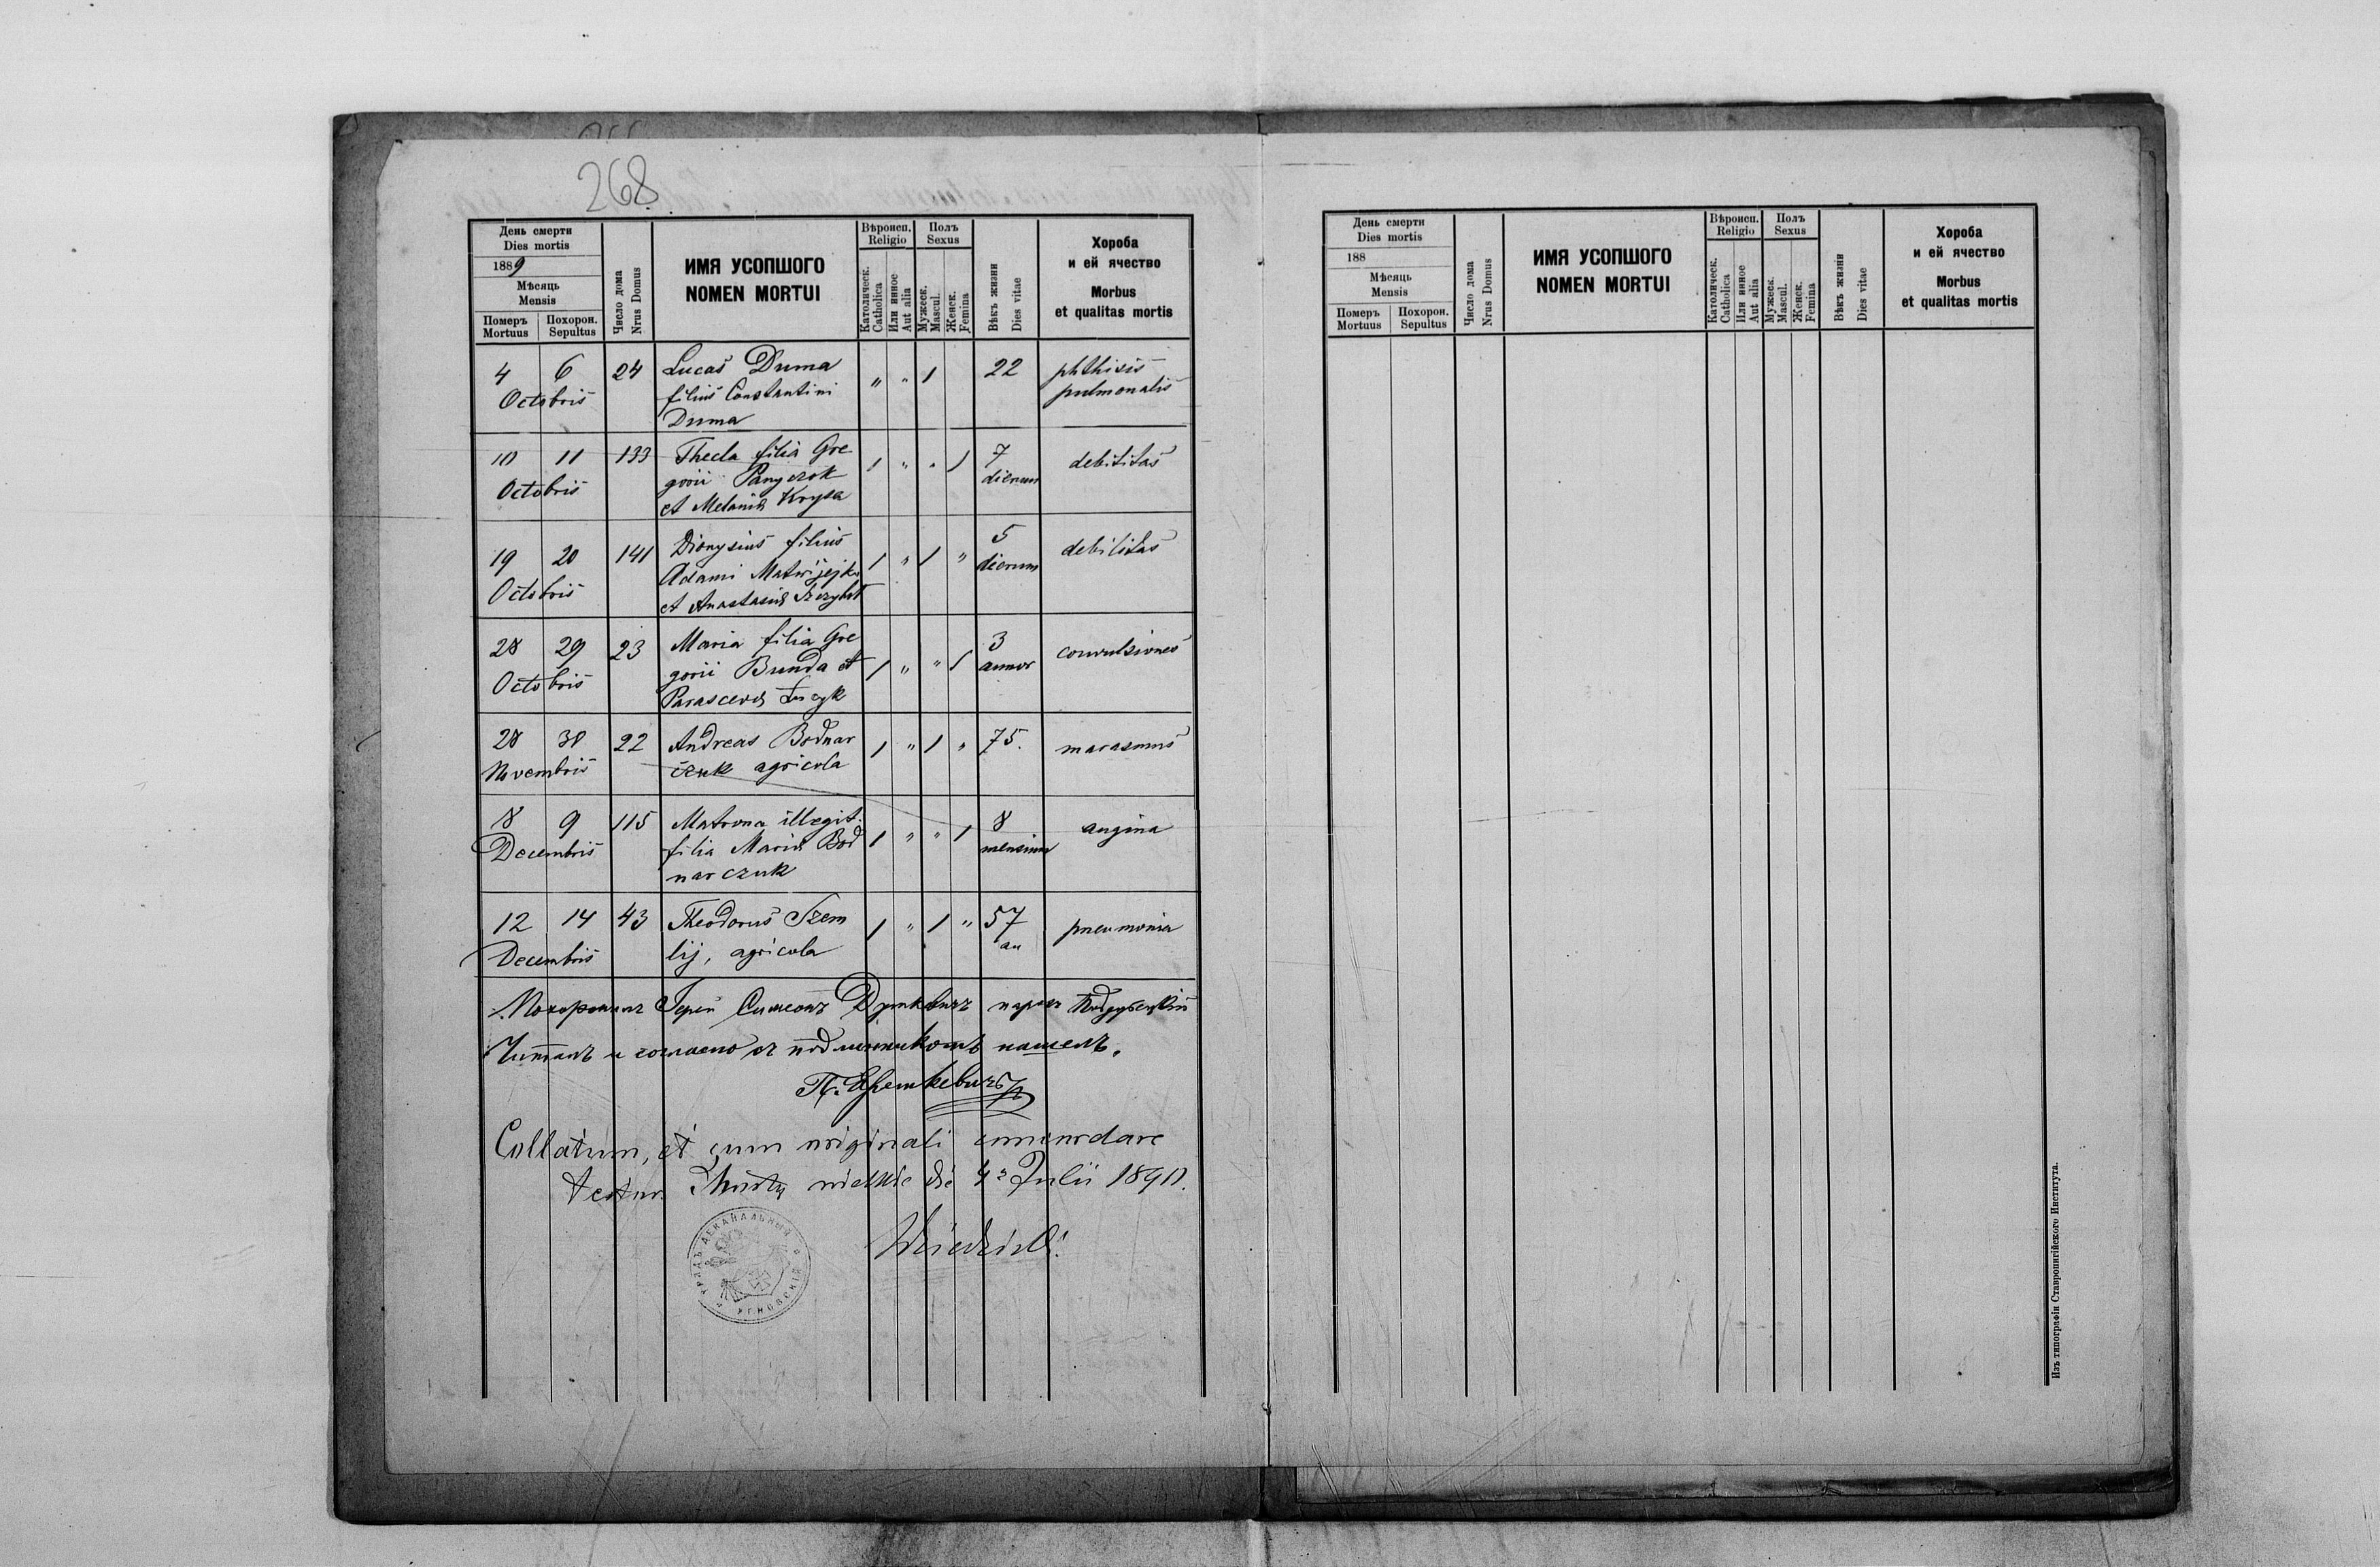 268
День смерти
Dies mortis
1889
Мѣсяць
Mensis
Померъ
Mortuus
Похорон.
Sepultus
Число дома
Nrus Domus
ИМЯ УСОПШОГО
NOMEN MORTUI
Вѣроисп.
Religio
Католическ.
Catholica
Или инное
Aut alia
Полъ
Sexus
Мужеск.
Mascul.
Женск.
Femina
Вѣкъ жизни
Dies vitae
Хороба
и ей ячество
Morbus
et qualitas mortis
4 6 24 Lucas Duma " " 1 22 phthisis
Octobris filius Constantini pulmonalis
Duma
10 11 133 Thecla filia Gre 1 " " 1 7 debilitas
Octobris gorii Panyczok dierum
et Melaniæ Krysa
19 20 141 Dionysius filius 1 " 1 " 5 debilitas
Octobris Adami Matwijejko dierum
et Anastasiæ
28 29 23 Maria filia Gre 1 " " 1 3 convulsiones
Octobris gorii Bunda et annor
Parascevæ
28 30 22 Andreas Bodnar 1 " 1 " 75. marasmus
Novembris czuk agricola
8 9 115 Matrona illegit. 1 " " 1 8 angina
Decembris filia Mariæ Bod mensium
narczuk
12 14 43 Theodorus Szem 1 " 1 " 57 pneumonia
Decembris lij, agricola an
Похоронилъ Іерей Симеонъ парох
Читалъ и согласно съ подлинникомъ нашелъ.
Collatum, et cum originali concordare
testur. die 4 Julii 1890.
День смерти
Dies mortis
188
Мѣсяць
Mensis
Померъ
Mortuus
Похорон.
Sepultus
Число дома
Nrus Domus
ИМЯ УСОПШОГО
NOMEN MORTUI
Вѣроисп.
Religio
Католическ.
Catholica
Или инное
Aut alia
Полъ
Sexus
Мужеск.
Mascul.
Женск.
Femina
Вѣкъ жизни
Dies vitae
Хороба
и ей ячество
Morbus
et qualitas mortis
Изъ типографіи Ставропигійского Института.